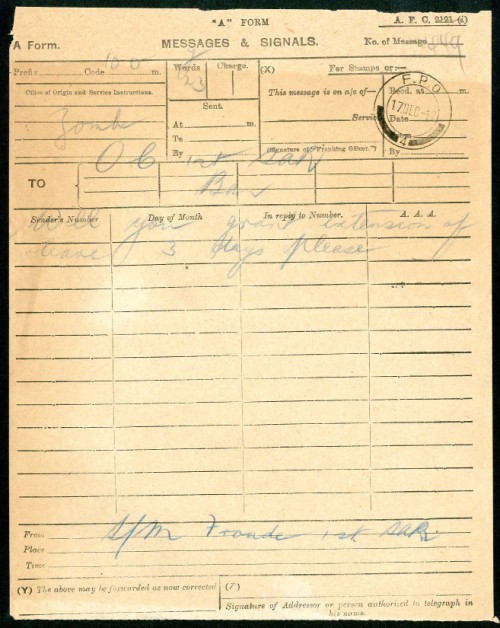 "A" FORM
A. F. C. 2121 (i)
A Form.
MESSAGES & SIGNALS.
No. of Message
Prefix Code m.
Words
Charge.
(X)
For Stamps:—
23
Office of Origin and Service Instructions.
This message is on a/c of—
Recd. at m.
Sent.
Service
Date
At m.
To
By
(Signature of "Franking Officer.")
By
F.P.O
17 DEC
Zomb
TO
OC 1st SAR
Sender's Number
Day of Month
In reply to Number.
A. A. A.
Will you grant extension of
leave 3 days please
From S/M Froude 1st SAR
Place
Time
(Y) The above may be forwarded as now corrected
(7)
Signature of Addressor or person authorized to telegraph in his name.